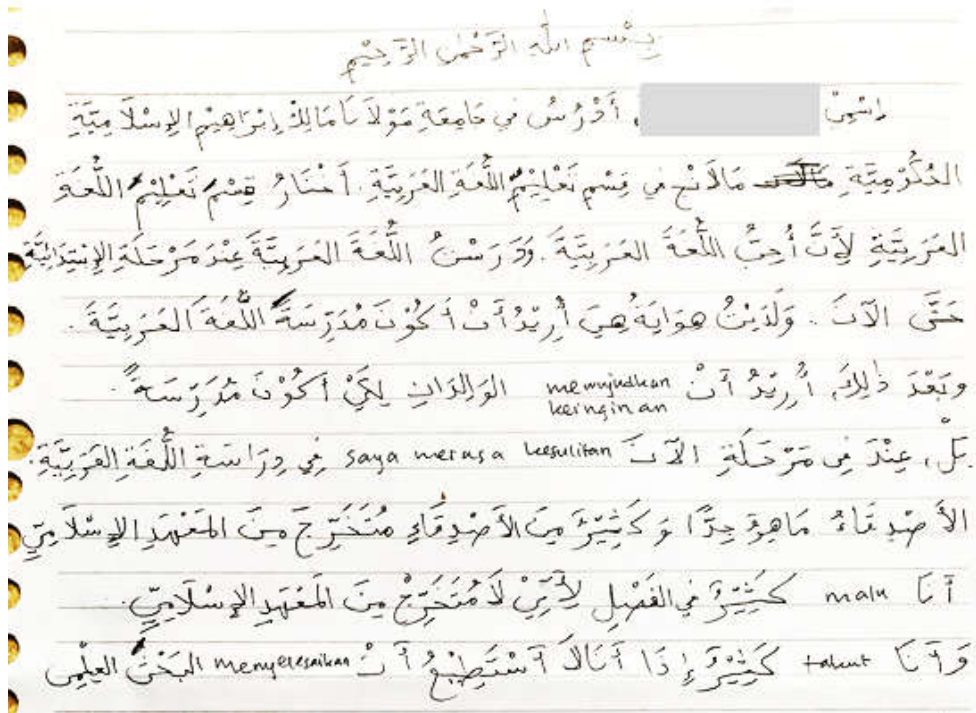 بِسْمِ اللهِ الرَّحْمٰنِ الرَّحِيْمِ
اِسْمِيْ ، أَدْرُسُ في جَامِعَةِ مَوْلَانَا مَالِكْ إِبْرَاهِيْم الإِسْلَامِيَّةِ
الحُكُوْمِيَّةِ مَالَانْج في قِسْمِ تَعْلِيْمِ اللُّغَةِ العَرَبِيَّةِ. أَخْتَارُ قِسْمَ تَعْلِيْمِ اللُّغَةِ
العَرَبِيَّةِ لِأَنَّ أُحِبُّ اللُّغَةَ العَرَبِيَّةَ. وَدَرَسْتُ اللُّغَةَ العَرَبِيَّةَ عِنْدَ مَرْحَلَةِ الإِبْتِدَائِيَّةِ
حَتَّى الآنَ. وَلَدَيْتُ هِوَايَةُ هِيَ أُرِيْدُ أَنْ أَكُوْنَ مُدَرِّسَةً اللُّغَةَ العَرَبِيَّةَ.
وبَعْدَ ذٰلِكَ، أُرِيْدُ أَنْ memwujudkan keinginan الوَالِدَانِ لِكَيْ أَكُوْنَ مُدَرِّسَةً.
بَلْ، عِنْدَ في مَرْحَلَةِ الآنَ saya merasa kesulitan فِي دِرَاسَةِ اللُّغَةِ العَرَبِيَّةِ.
الأَصْدِقَاءُ مَاهِرٌ جِدًّا وَ كَثِيْرٌ مِنَ الأَصْدِقَاءِ مُتَخَرِّجٌ مِنَ المَعْهَدِ الإِسْلَامِيِّ
أَنَا malu كَثِيْرٌ في الفَصْلِ لِأَنِّيْ لَا مُتَخَرِّجْ مِنَ المَعْهَدِ الإِسْلَامِيِّ.
وَ أَنَا takut كَثِيْرٌ إِذَا أَنَا لَا أَسْتَطِيْعُ أَنْ menyelesaikan البَحْثَ العِلْمِي